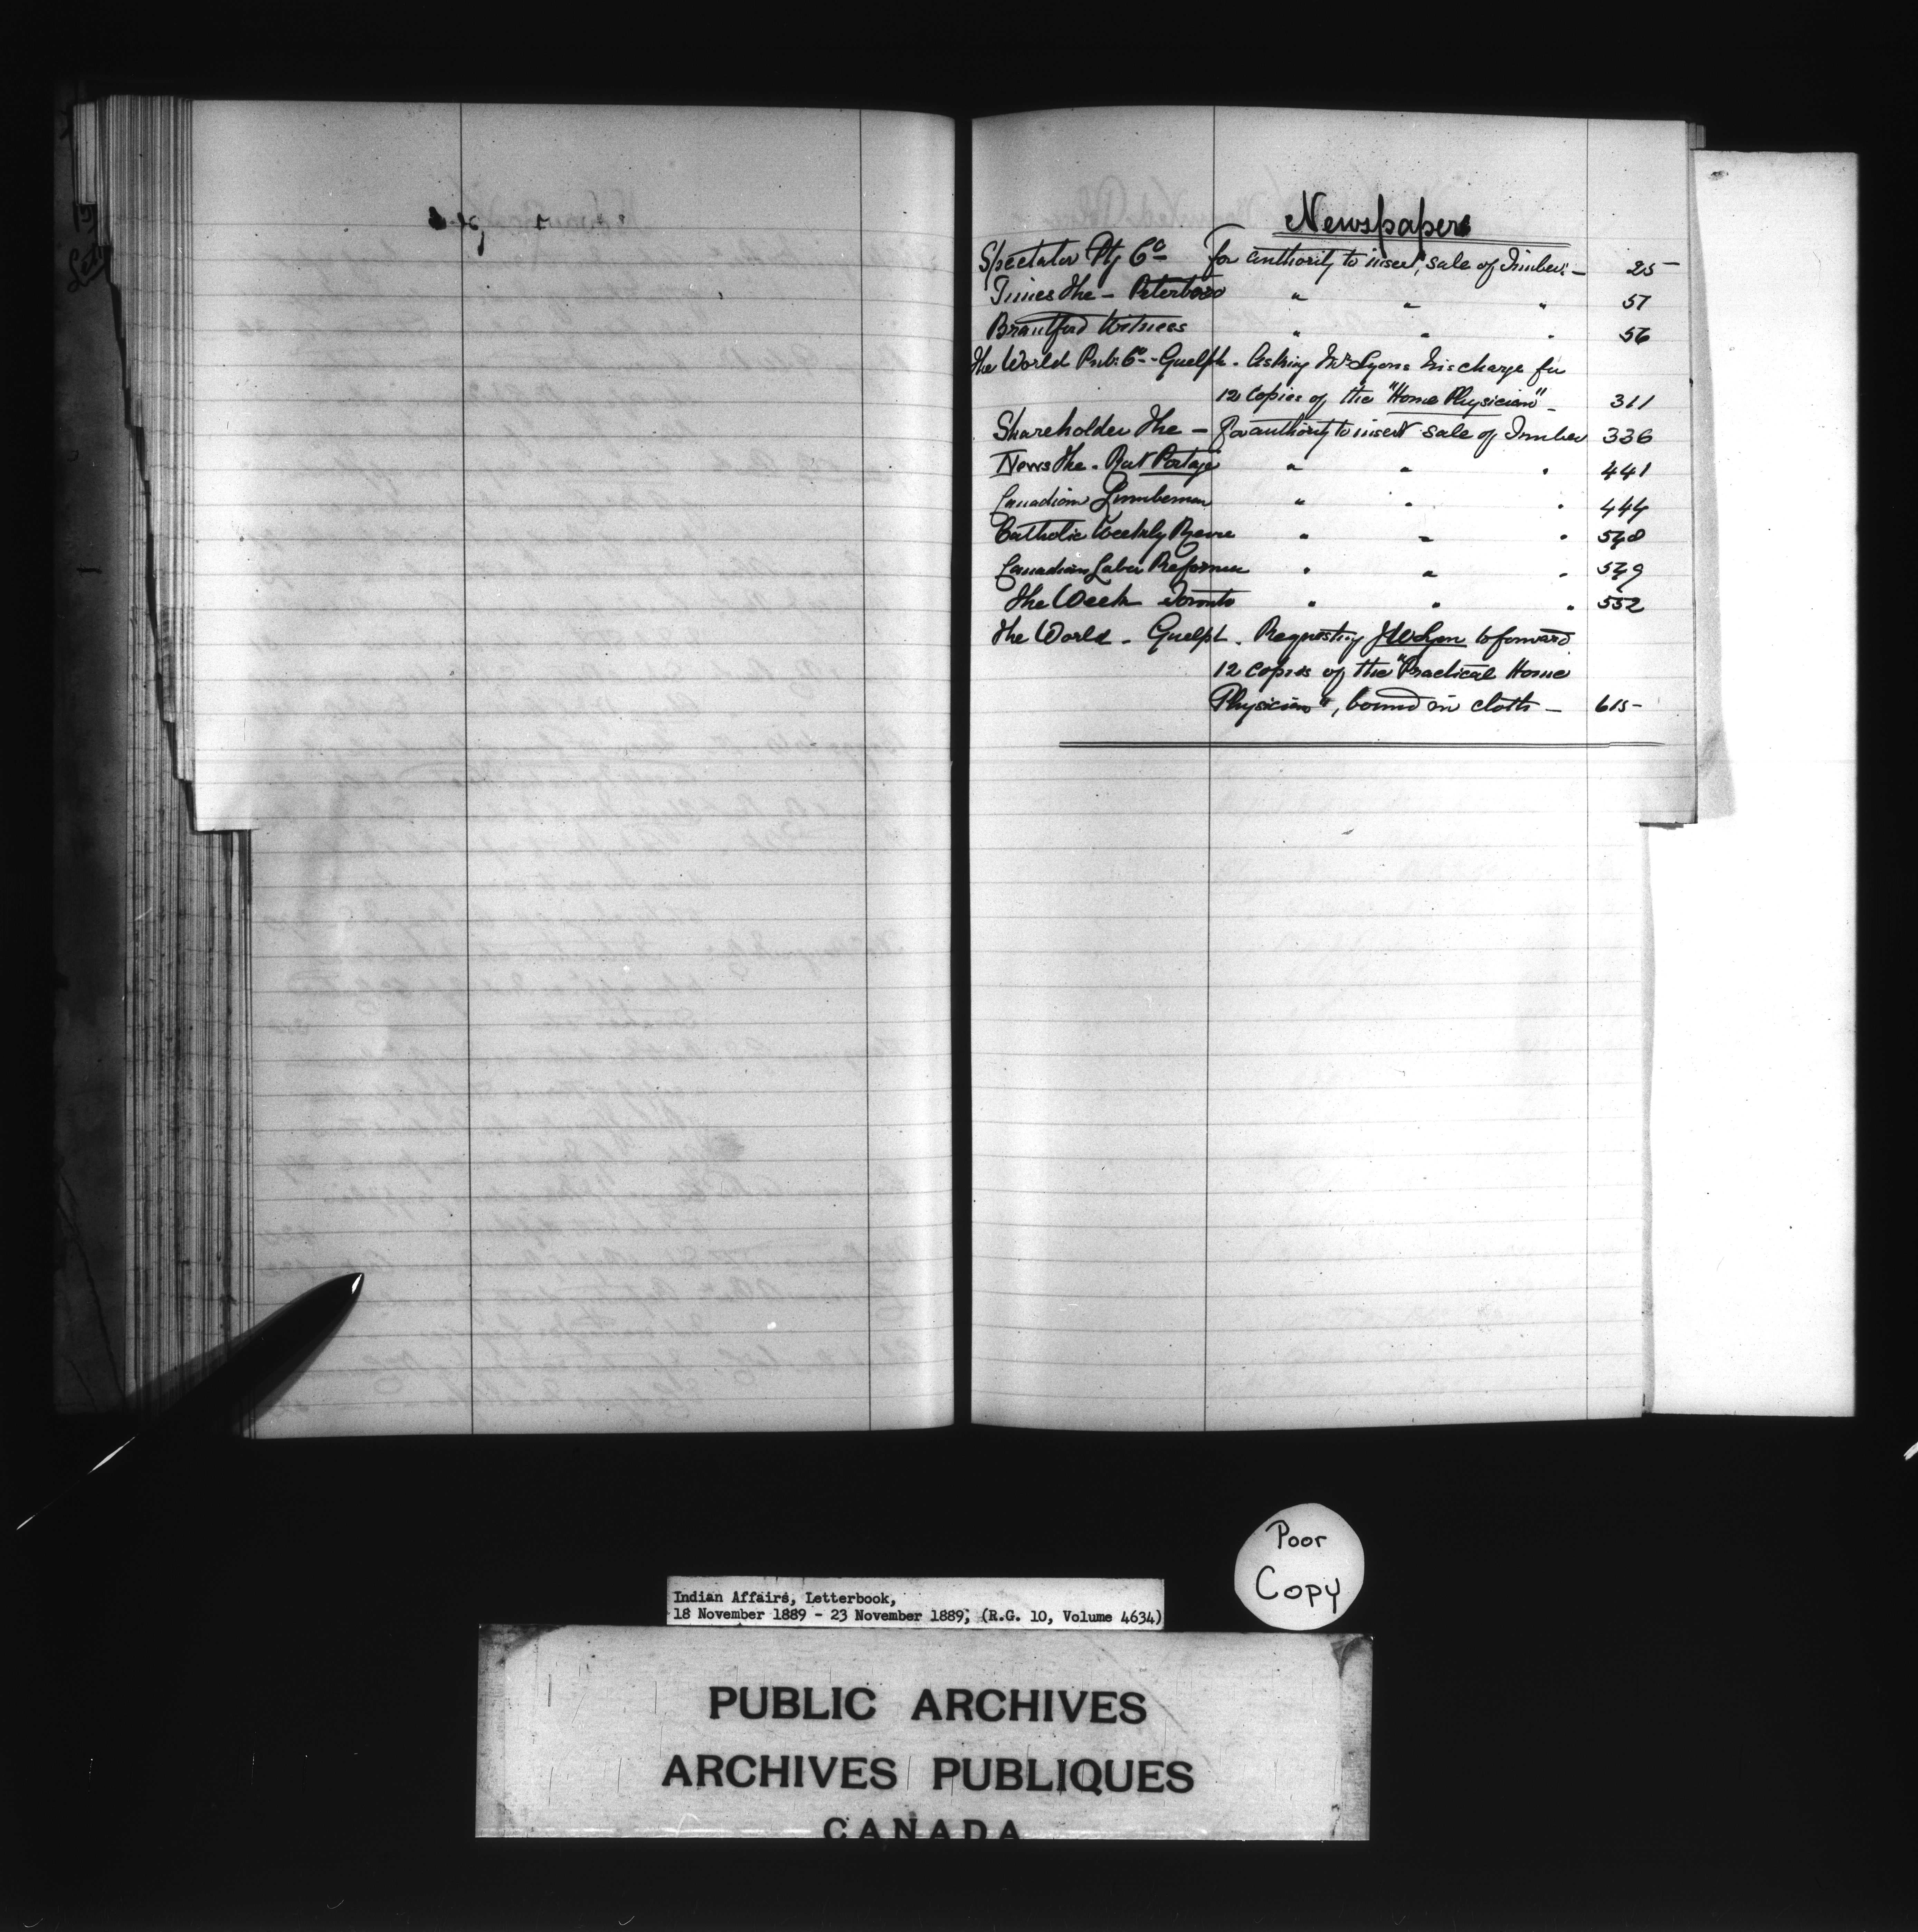 Newspapers
Spectator Ptg Co For authority to insert, sale of Timber - 25
Times The - Peterboro " " " 51
Brantford Witness " " " 56
The World Pub. Co - Guelph - Asking Mr Lyons his charge for
12 copies of the "Home Physician" - 311
Shareholder The - For authority to insert sale of Timber 336
News The - Rat Portage " " " 441
Canadian Lumberman " " " 444
Catholic Weekly Review " " " 548
Canadian Labor Reformer " " " 549
The Week Toronto " " " 552
The World - Guelph - Requesting J W Lyon to forward
12 copies of the "Practical Home
Physician", bound in cloth - 615
Poor
Copy
Indian Affairs, Letterbook,
18 November 1889 - 23 November 1889, (R.G. 10, Volume 4634)
PUBLIC ARCHIVES
ARCHIVES PUBLIQUES
CANADA